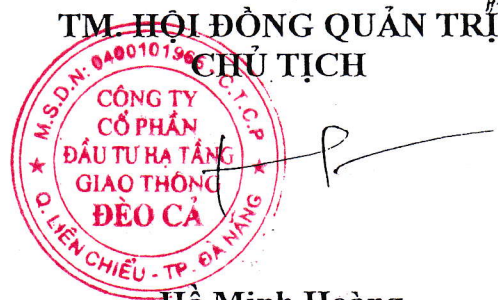 TM. HỘI ĐỒNG QUẢN TRỊ
CHỦ TỊCH
M.S.D.N: 0400101965 C.T.C.P
CÔNG TY
CỔ PHẦN
ĐẦU TƯ HẠ TẦNG
GIAO THÔNG
ĐÈO CẢ
Q. LIÊN CHIỂU - TP. ĐÀ NẴNG
Hồ Minh Hoàng